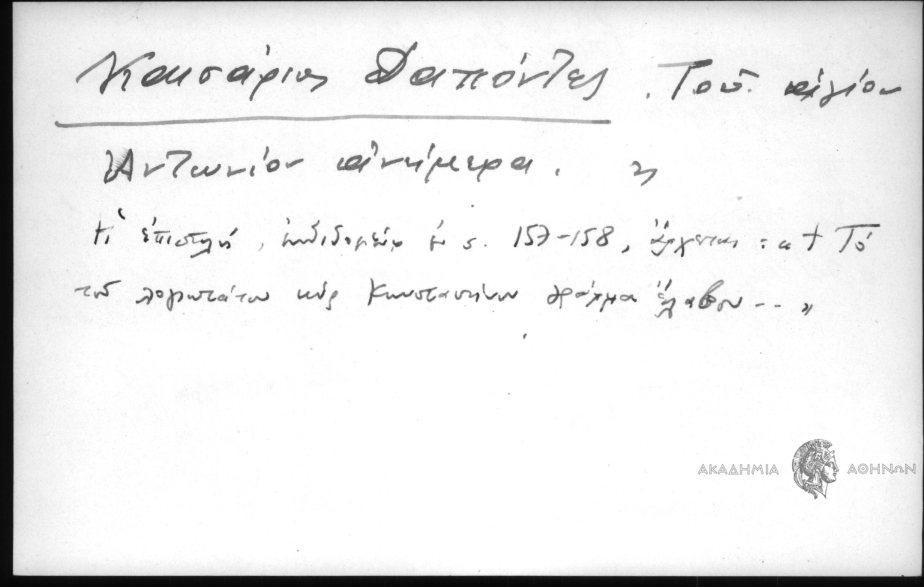 Καισάριος Δαπόντες. Τοῦ ἁγίου
Ἀντωνίου ἀνήμερα.
Ἡ ἐπιστολή, ἐκδιδομένη ἐν σ. 157-158, ἄρχεται: «† Τό
τοῦ λογιωτάτου κύρ Κωνσταντίνου γράμμα ἔλαβον -- »
ΑΚΑΔΗΜΙΑ ΑΘΗΝΩΝ